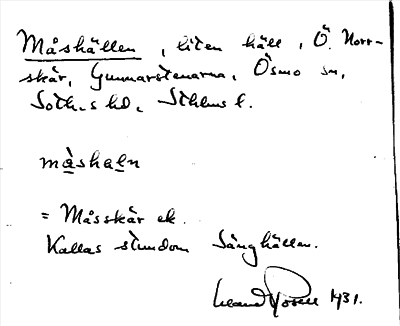 Måshällen, liten häll, Ö. Norr-
skär, Gunnarstenarna, Ösmo sn,
Soth.s hd, Sthlms l.
måshaln
= Måsskär ek.
Kallas stundom Sånghällen.
1931.